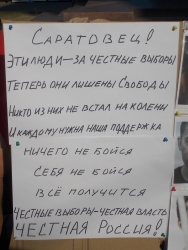 САРАТОВЕЦ!
ЭТИ ЛЮДИ—ЗА ЧЕСТНЫЕ ВЫБОРЫ
ТЕПЕРЬ ОНИ ЛИШЕНЫ СВОБОДЫ
НИКТО ИЗ НИХ НЕ ВСТАЛ НА КОЛЕНИ
И КАЖДОМУ НУЖНА НАША ПОДДЕРЖКА
НИЧЕГО НЕ БОЙСЯ
СЕБЯ НЕ БОЙСЯ
ВСЁ ПОЛУЧИТСЯ
ЧЕСТНЫЕ ВЫБОРЫ-ЧЕСТНАЯ ВЛАСТЬ
ЧЕСТНАЯ РОССИЯ!